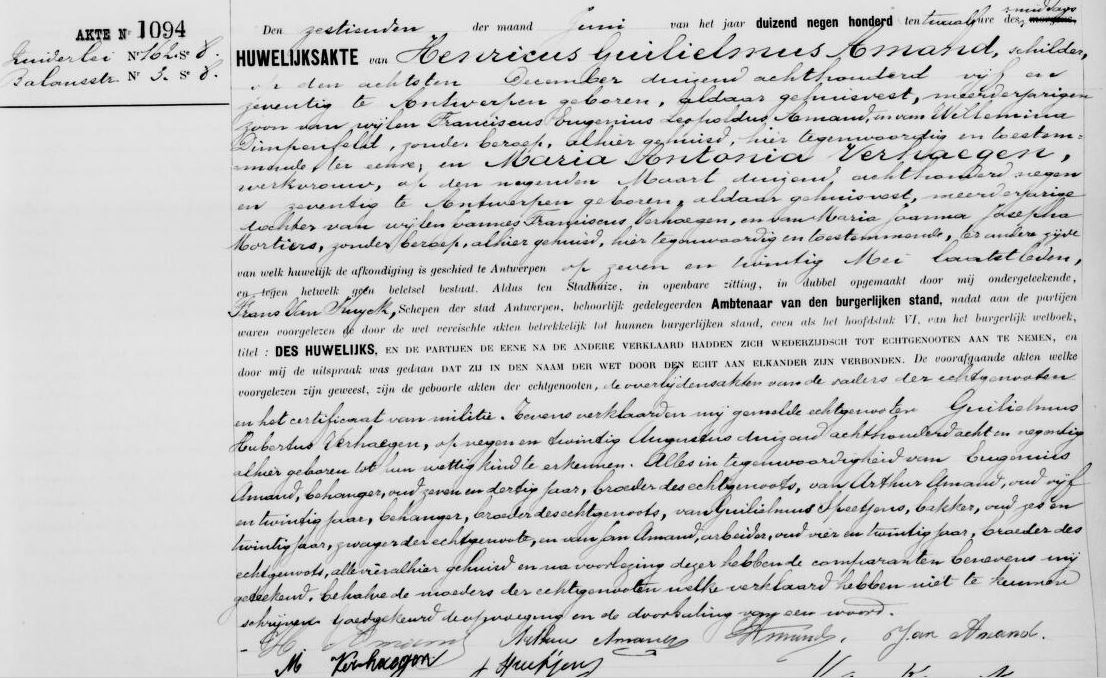 AKTE N 1094
Zuiderlei N° 102 S 8.
Balansstr N° 3. S 8.
Den zestienden der maand Juni van het jaar duizend negen honderd ten twaalf ure des middags
HUWELIJKSAKTE van Henricus Guilielmus Amand, schilder,
op den achtsten December duizend achthonderd vijf en
zeventig te Antwerpen geboren, aldaar gehuisvest, meerderjarigen
zoon van wijlen Franciscus Eugenius Leopoldus Amand, en van Willemina
Dimpenfeld, zonder beroep, alhier gehuisd, hier tegenwoordig en toestem-
mende, ter eene; en Maria Antonia Verhaegen,
werkvrouw, op den negenden Maart duizend achthonderd negen
en zeventig te Antwerpen geboren, aldaar gehuisvest, meerderjarige
dochter van wijlen Joannes Franciscus Verhaegen, en van Maria Joanna Josepha
Mortiers, zonder beroep, alhier gehuisd, hier tegenwoordig en toestemmende, ter andere zijde
van welk huwelijk de afkondiging is geschied te Antwerpen op zeven en twintig Mei laatstleden,
en tegen hetwelk geen beletsel bestaat. Aldus ten Stadhuize, in openbare zitting, in dubbel opgemaakt door mij ondergeteekende,
Frans Van Kuyck, Schepen der stad Antwerpen, behoorlijk gedelegeerden Ambtenaar van den burgerlijken stand, nadat aan de partijen
waren voorgelezen de door de wet vereischte akten betrekkelijk tot hunnen burgerlijken stand, even als het hoofdstuk VI, van het burgerlijk wetboek,
titel : DES HUWELIJKS, EN DE PARTIJEN DE EENE NA DE ANDERE VERKLAARD HADDEN ZICH WEDERZIJDSCH TOT ECHTGENOOTEN AAN TE NEMEN, en
door mij de uitspraak was gedaan DAT ZIJ IN DEN NAAM DER WET DOOR DEN ECHT AAN ELKANDER ZIJN VERBONDEN. De voorafgaande akten welke
voorgelezen zijn geweest, zijn de geboorte akten der echtgenooten, de overlijdensakten van de vaders der echtgenooten
en het certificaat van militie. Tevens verklaarden mij gemelde echtgenooten Guilielmus
Hubertus Verhaegen, op negen en twintig Augustus duizend achthonderd acht en negentig
alhier geboren tot hun wettig kind te erkennen. Alles in tegenwoordigheid van Eugenius
Amand, behanger, oud zeven en dertig jaar, broeder des echtgenoots, van Arthur Amand, oud vijf
en twintig jaar, behanger, broeder des echtgenoots, van Guilielmus Speetjens, bakker, oud zes en
twintig jaar, zwager der echtgenoote, en van Jan Amand, arbeider, oud vier en twintig jaar, broeder des
echtgenoots, alle vier alhier gehuisd en na voorlezing dezer hebben de comparanten benevens mij
geteekend, behalve de moeders der echtgenooten welke verklaard hebben niet te kunnen
schrijven Goedgekeurd de bijvoeging en de doorhaling van een woord.
H Amand Arthur Amand E Amand. Jan Amand.
M Verhaegen